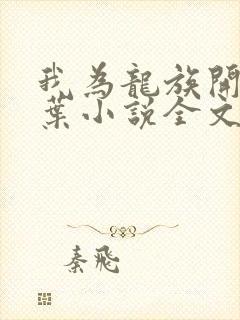 我为龍族開
葉小説全文
秦飛